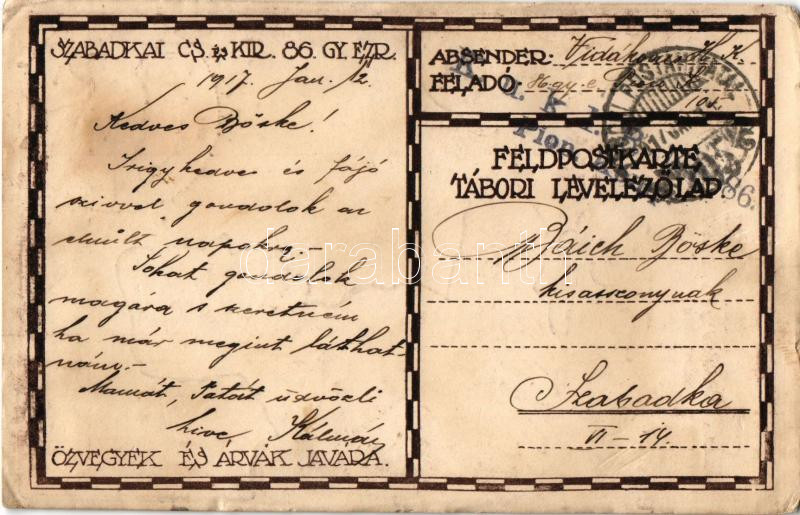 SZABADKAI CS. és KIR. 86. GY. EZR.
1917. Jan. 12.
Kedves Böske!
Irigykedve és fájó
szivvel gondolok az
elmúlt napokra.-
Sokat gondolok
magára s szeretném
ha már megint láthat-
nám.-
Mamát, Tatát üdvözli
hive Kálmán
ÖZVEGYEK ÉS ÁRVÁK JAVÁRA.
ABSENDER:
FELADÓ 86. gy. e.
FELDPOSTKARTE
TÁBORI LEVELEZŐLAP.
86.
Báich Böske
kisasszonynak
Szabadka
VI-14.
darabanth